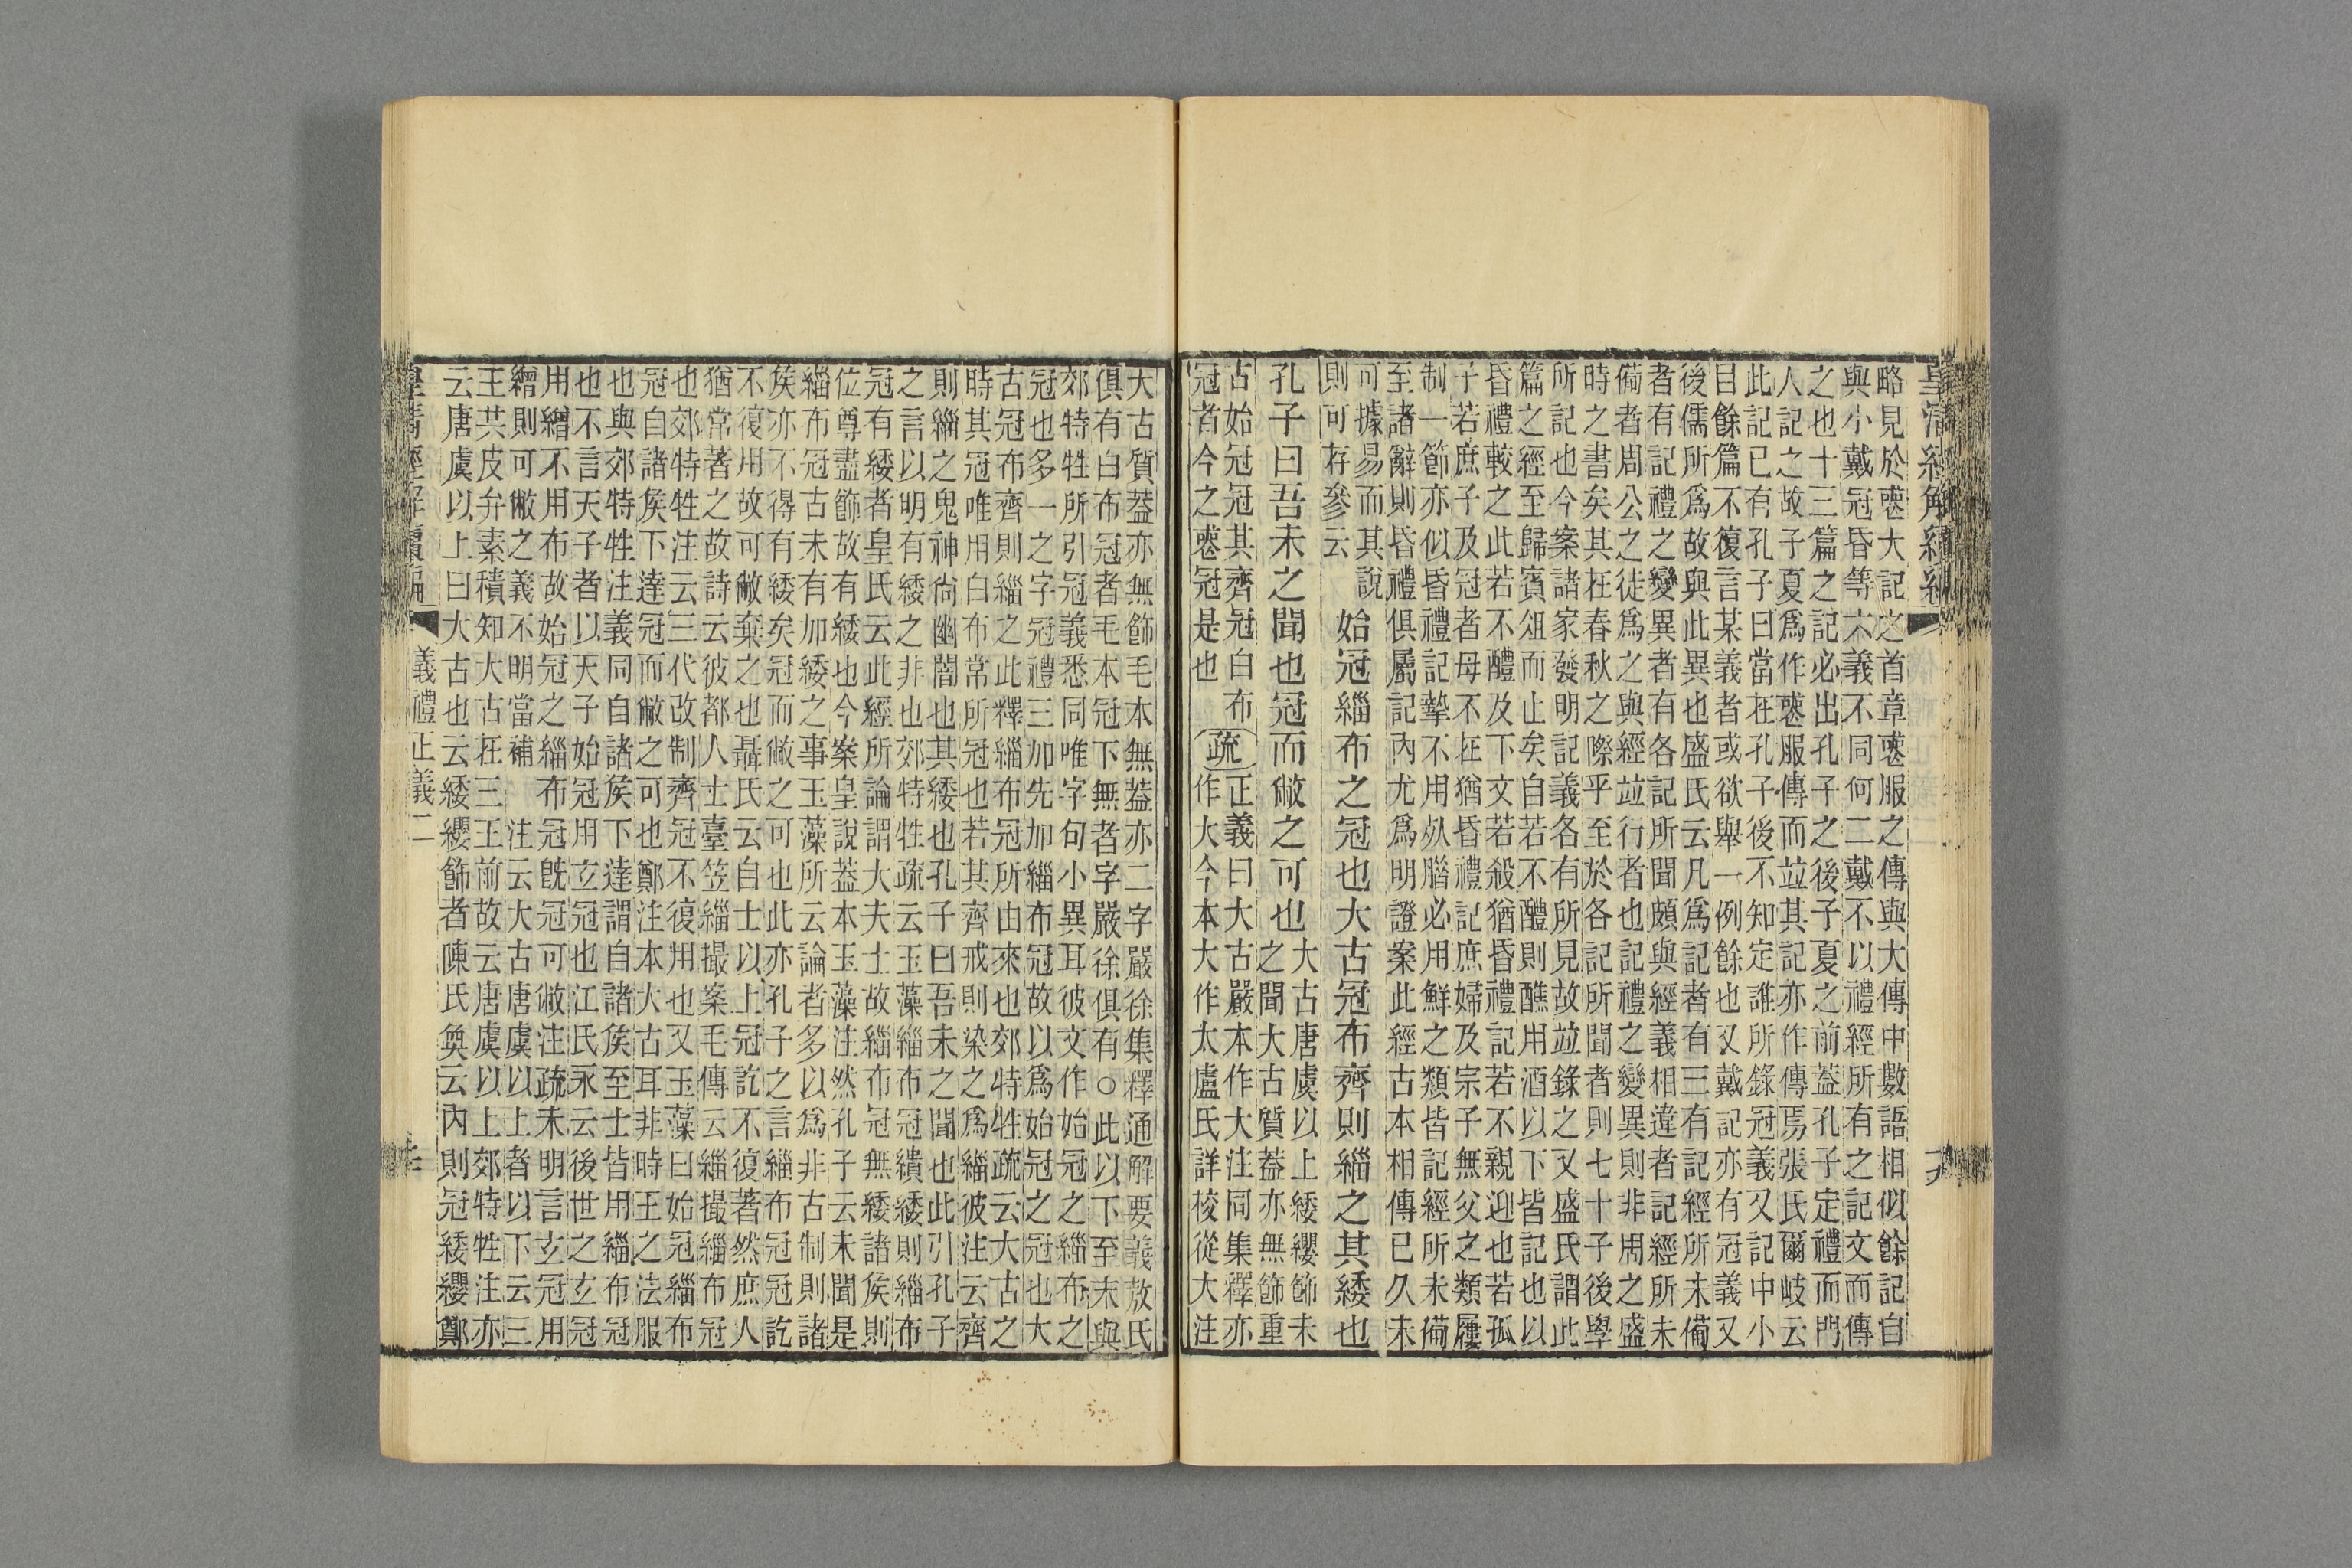 略見於喪大記之首章喪服之傳與大傳中數語相似餘記自
與小戴冠昏等六義不同何二戴不以禮經所有之記文而傳
之也十三篇之記必出孔子之後子夏之前蓋孔子定禮而門
人記之故子夏為作喪服傳而竝其記亦作傳焉張氏爾岐云
此記已有孔子曰當在孔子後不知定誰所錄冠義又記中小
目餘篇不復言某義者或欲舉一例餘也又戴記亦有冠義又
後儒所爲故與此異也盛氏云凡爲記者有三有記經所未備
者有記禮之變異者有各記所聞頗與經義相違者記經所未
備者周公之徒爲之與經竝行者也記禮之變異則非周之盛
時之書矣其在春秋之際乎至於各記所聞者則七十子後學
所記也今案諸家發明記義各有所見故竝錄之又盛氏謂此
篇之經至歸賓俎而止矣自若不醴則醮用酒以下皆記也以
昏禮較之此若不醴及下文若殺猶昏禮記若不親迎也若孤
子若庶子及冠者母不在猶昏禮記庶婦及宗子無父之類屨
制一節亦似昏禮記摯不用死腊必用鮮之類皆記經所未備
至諸辭則昏禮俱屬記內尤爲明證案此經古本相傳已久未
可據易而其說
則可存參云
始冠緇布之冠也大古冠布齊則緇之其緌也
孔子曰吾未之聞也冠而敝之可也
大古唐虞以上緌纓飾未
之聞大古質蓋亦無飾重
古始冠冠其齊冠白布
冠者今之喪冠是也
疏
正義曰大古嚴本作大注同集釋亦
作大今本大作太盧氏詳校從大注
大古質蓋亦無飾毛本無蓋亦二字嚴徐集釋通解要義敖氏
俱有白布冠者毛本冠下無者字嚴徐俱有○此以下至末與
郊特牲所引冠義悉同唯字句小異耳彼文作始冠之緇布之
冠也多一之字冠禮三加先加緇布冠故以爲始冠之冠也大
古冠布齊則緇之此釋緇布冠所由來也郊特牲疏云大古之
時其冠唯用白布常所冠也若其齊戒則染之爲緇彼注云齊
則緇之鬼神尚幽闇也其緌也孔子曰吾未之聞也此引孔子
之言以明有緌之非也郊特牲疏云玉藻緇布冠繢緌則緇布
冠有緌者皇氏云此經所論謂大夫士故緇布冠無緌諸矦則
位尊盡飾故有緌也今案皇說蓋本玉藻注然孔子云未聞是
緇布冠古未有加緌之事玉藻所云論者多以爲非古制則諸
矦亦不得有緌矣冠而敝之可也此亦孔子之言緇布冠冠訖
不復用故可敝棄之也聶氏云自士以上冠訖不復著然庶人
猶常著之故詩云彼都人士臺笠緇撮案毛傳云緇撮緇布冠
也郊特牲注云三代改制齊冠不復用也又玉藻曰始冠緇布
冠自諸矦下達冠而敝之可也鄭注本大古耳非時王之法服
也與郊特牲注義同自諸矦下達謂自諸矦至士皆用緇布冠
也不言天子者以天子始冠用玄冠也江氏永云後世之玄冠
用繒不用布故始冠之緇布冠旣冠可敝注疏未明言玄冠用
繒則可敝之義不明當補 注云大古唐虞以上者以下云三
王共皮弁素積知大古在三王前故云唐虞以上郊特牲注亦
云唐虞以上曰大古也云緌纓飾者陳氏奐云內則冠緌纓鄭
義禮正義二